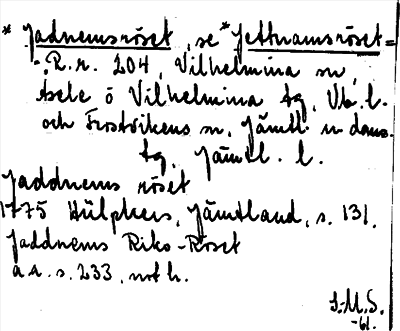 * Jadnemsröset, se * Jettnamsröset=
R.r. 204, Vilhelmina sn,
Åsele o Vilhelmina tg, Vb. l.
och Frostvikens sn, Jämtl. n doms.
tg, Jämtl. l.
Jaddnems röset
1775 Hülphers, Jämtland, s. 131.
Jaddnems Riks-Röset
a.a. s. 233, not h.
S.M.S.
-61.